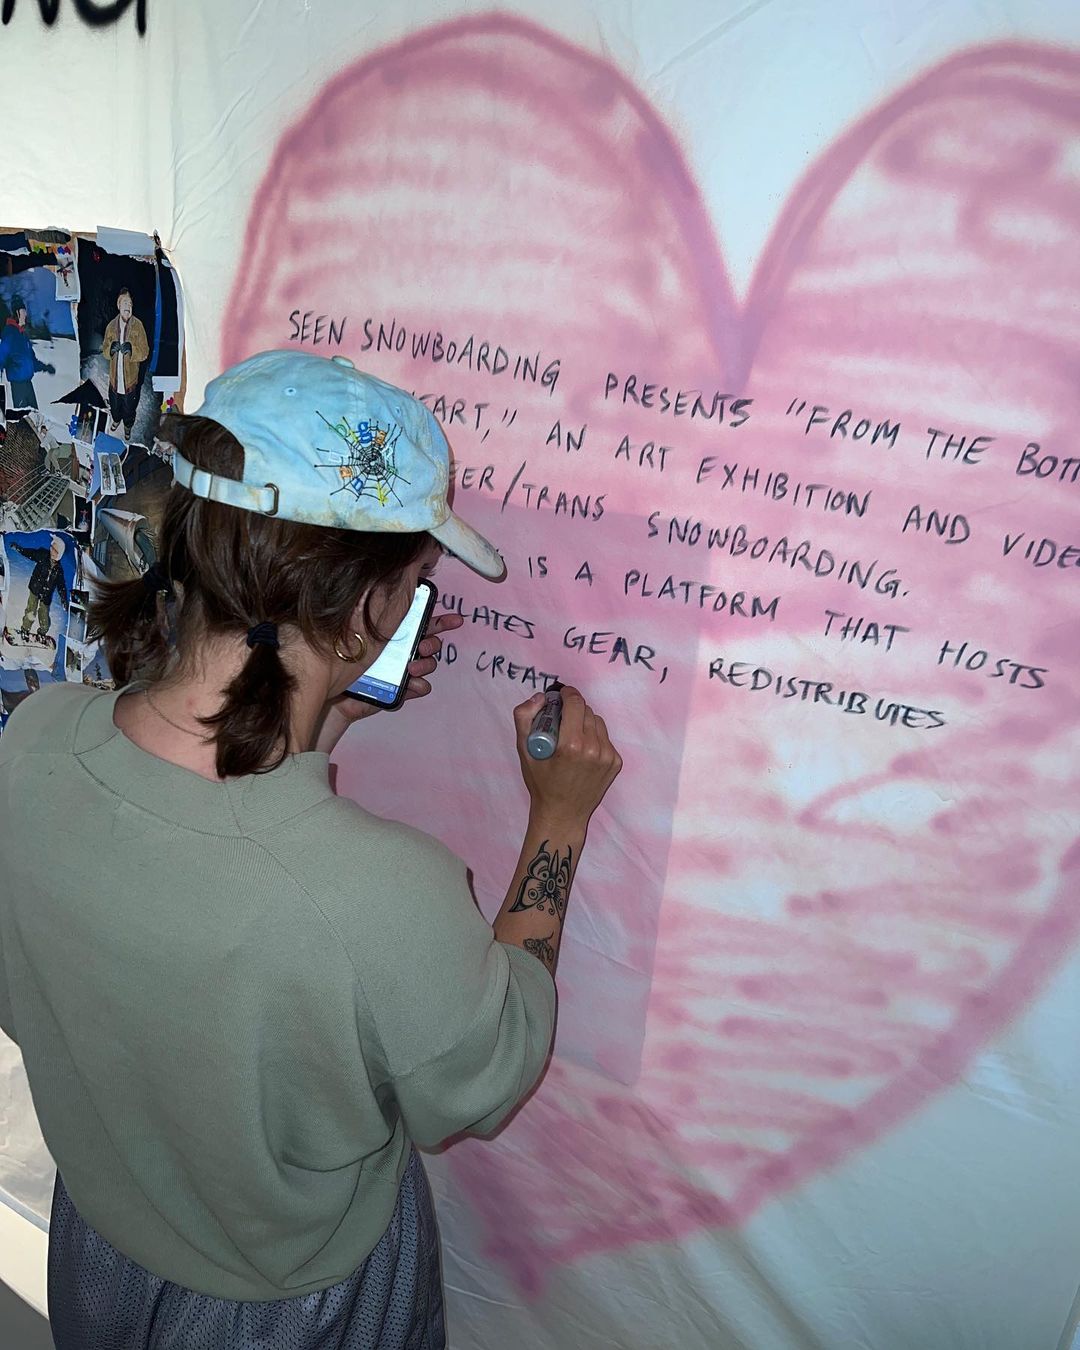 SEEN SNOWBOARDING PRESENTS "FROM THE BOTT
EART," AN ART EXHIBITION AND VIDE
EER/TRANS SNOWBOARDING.
IS A PLATFORM THAT HOSTS
ULATES GEAR, REDISTRIBUTES
ND CREAT